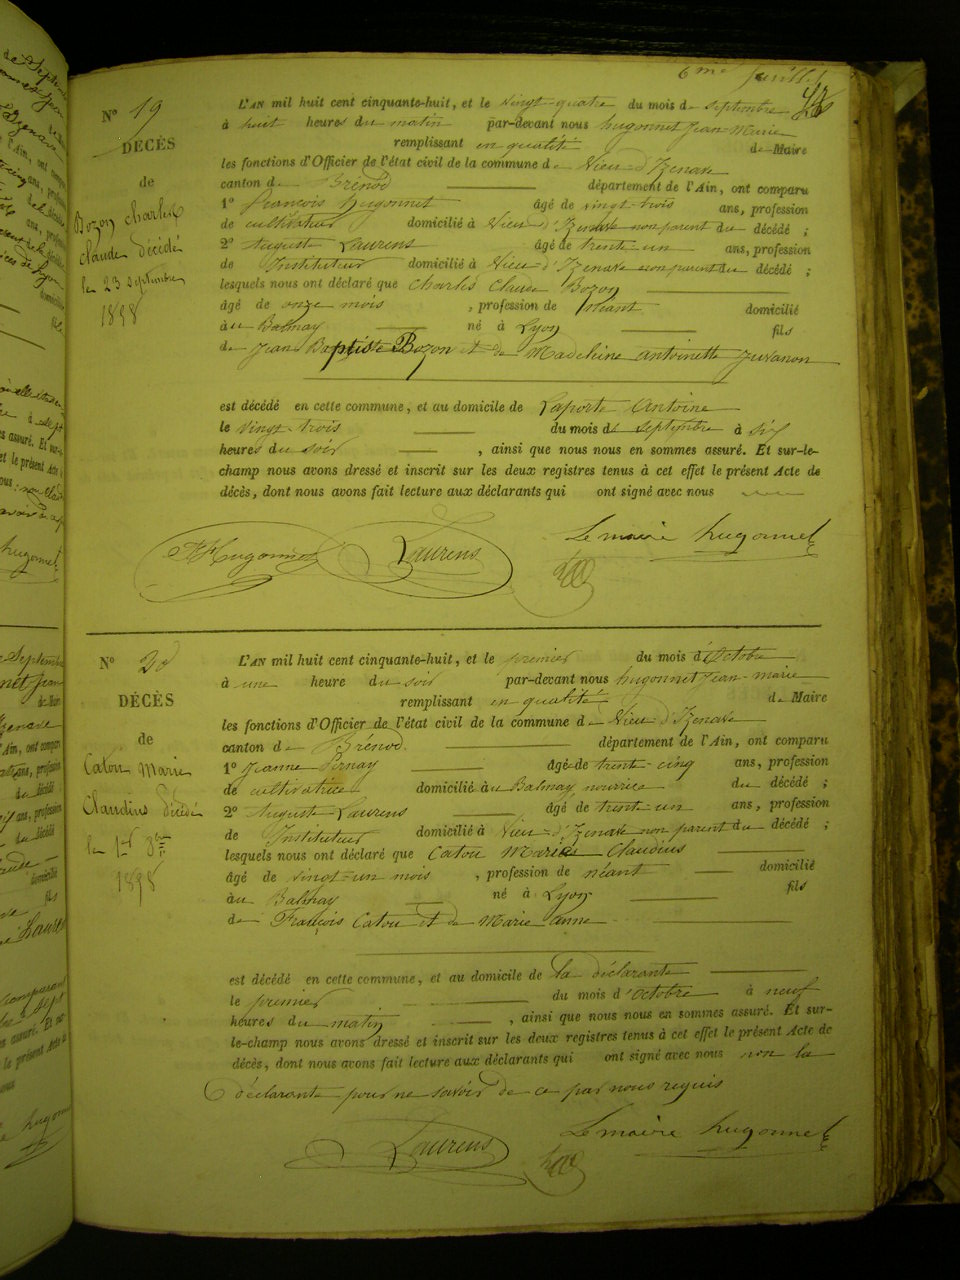 6me feuillet
N° 19
DÉCÈS
de
Bozon Charles
Claude décédé
le 23 septembre
1858
L'AN mil huit cent cinquante-huit, et le vingt-quatre du mois de septembre
à huit heures du matin par-devant nous hugonnet Jean-Marie
remplissant en qualité de Maire
les fonctions d'Officier de l'état civil de la commune de Vieu-d'Izenave
canton de Brénod département de l'Ain, ont comparu
1° françois hugonnet âgé de vingt-trois ans, profession
de cultivateur domicilié à Vieu-d'Izenave non parent du décédé ;
2° Auguste Laurens âgé de trente-un ans, profession
de Instituteur domicilié à Vieu-d'Izenave non parent du décédé ;
lesquels nous ont déclaré que Charles Claude Bozon
âgé de onze mois , profession de néant domicilié
au Balmay né à Lyon fils
de Jean Baptiste Bozon et de Madeleine antoinette Juvanon
est décédé en cette commune, et au domicile de Laporte Antoine
le vingt-trois du mois de septembre à six
heures du soir , ainsi que nous nous en sommes assuré. Et sur-le-
champ nous avons dressé et inscrit sur les deux registres tenus à cet effet le présent Acte de
décès, dont nous avons fait lecture aux déclarants qui ont signé avec nous
Hugonnet Laurens Le maire hugonnet
N° 20
DÉCÈS
de
Catou Marie
Claudius décédé
le 1er 8bre
1858
L'AN mil huit cent cinquante-huit, et le premier du mois d'Octobre
à une heure du soir par-devant nous hugonnet Jean-marie
remplissant en qualité de Maire
les fonctions d'Officier de l'état civil de la commune de Vieu d'Izenave
canton de Brénod département de l'Ain, ont comparu
1° Jeanne Pernay âgé de trente-cinq ans, profession
de cultivatrice domicilié au Balmay nourrice du décédé ;
2° Auguste Laurens âgé de trente-un ans, profession
de Instituteur domicilié à Vieu-d'Izenave non parent du décédé ;
lesquels nous ont déclaré que Catou Marie Claudius
âgé de vingt-un mois , profession de néant domicilié
au Balmay né à Lyon fils
de François Catou et de Marie anne
est décédé en cette commune, et au domicile de la déclarante
le premier du mois d'octobre à neuf
heures du matin , ainsi que nous nous en sommes assuré. Et sur-
le-champ nous avons dressé et inscrit sur les deux registres tenus à cet effet le présent Acte de
décès, dont nous avons fait lecture aux déclarants qui ont signé avec nous non la
déclarante pour ne savoir de ce par nous requis
Laurens Le maire hugonnet